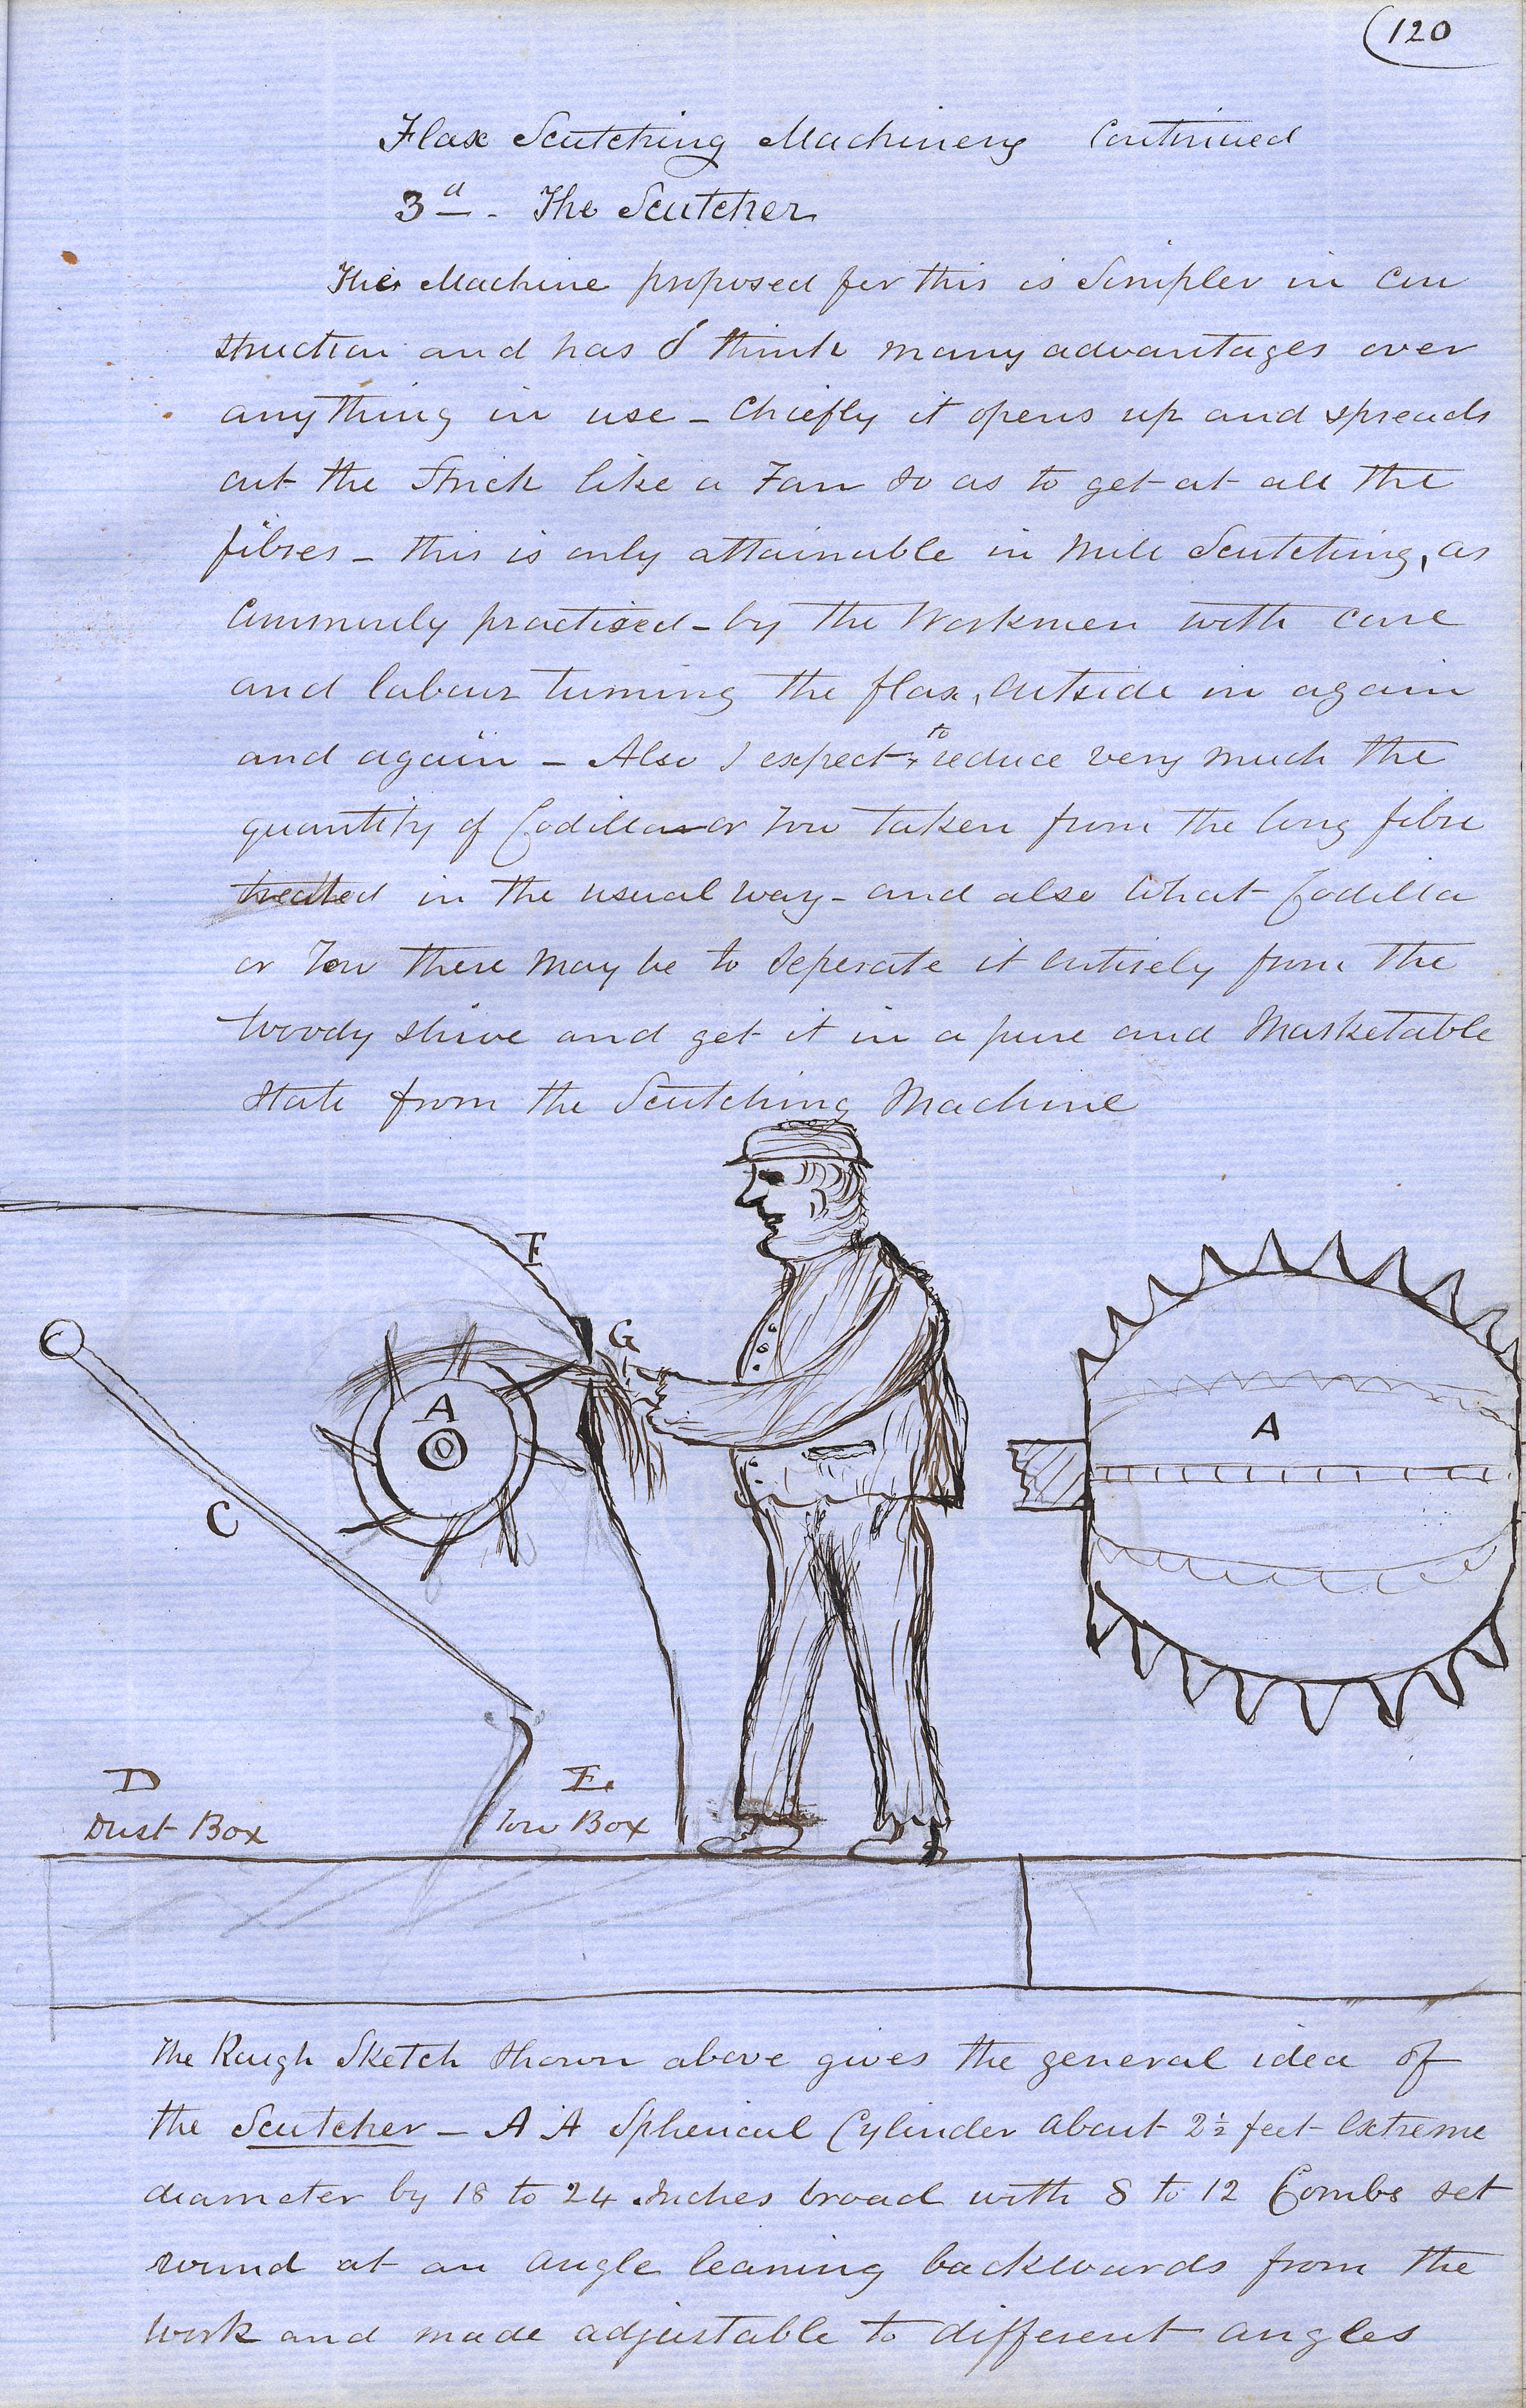 (120
Flax Scutching Machinery Continued
3d - The Scutcher
The Machine proposed for this is Simpler in Con
struction and has I think many advantages over
anything in use - Chiefly it opens up and spreads
out the Strick like a Fan so as to get at all the
fibres - this is only attainable in Mill Scutching, as
Commonly practised - by the Workmen with care
and labour turning the flax, outside in again
and again - Also I expect to reduce very much the
quantity of Codilla or Tow taken from the long fibre
treated in the usual way - and also what Codilla
or Tow there may be to seperate it entirely from the
woody shive and get it in a pure and Marketable
state from the Scutching Machine
F
G
A
A
C
D
E.
Dust Box
Tow Box
The Rough Sketch shown above gives the general idea of
the Scutcher - A A Spherical Cylinder about 2½ feet extreme
diameter by 18 to 24 Inches broad with 8 to 12 Combs set
round at an angle leaning backwards from the
work and made adjustable to different angles